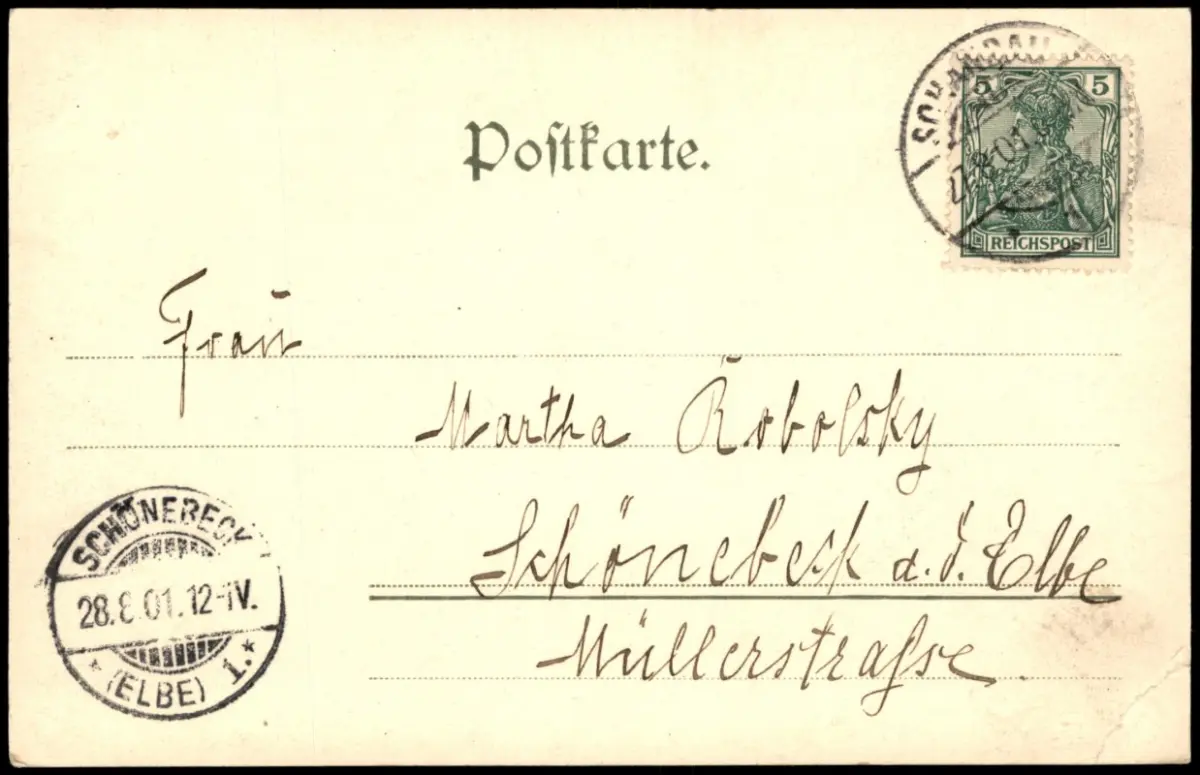 SCHANDAU
5 5
27.8.01.
REICHSPOST
Postkarte.
Frau
Martha Robolsky
Schönebeck a. d. Elbe
Müllerstraße.
SCHÖNEBECK
28.8.01.12-1V.
* (ELBE) 1.*